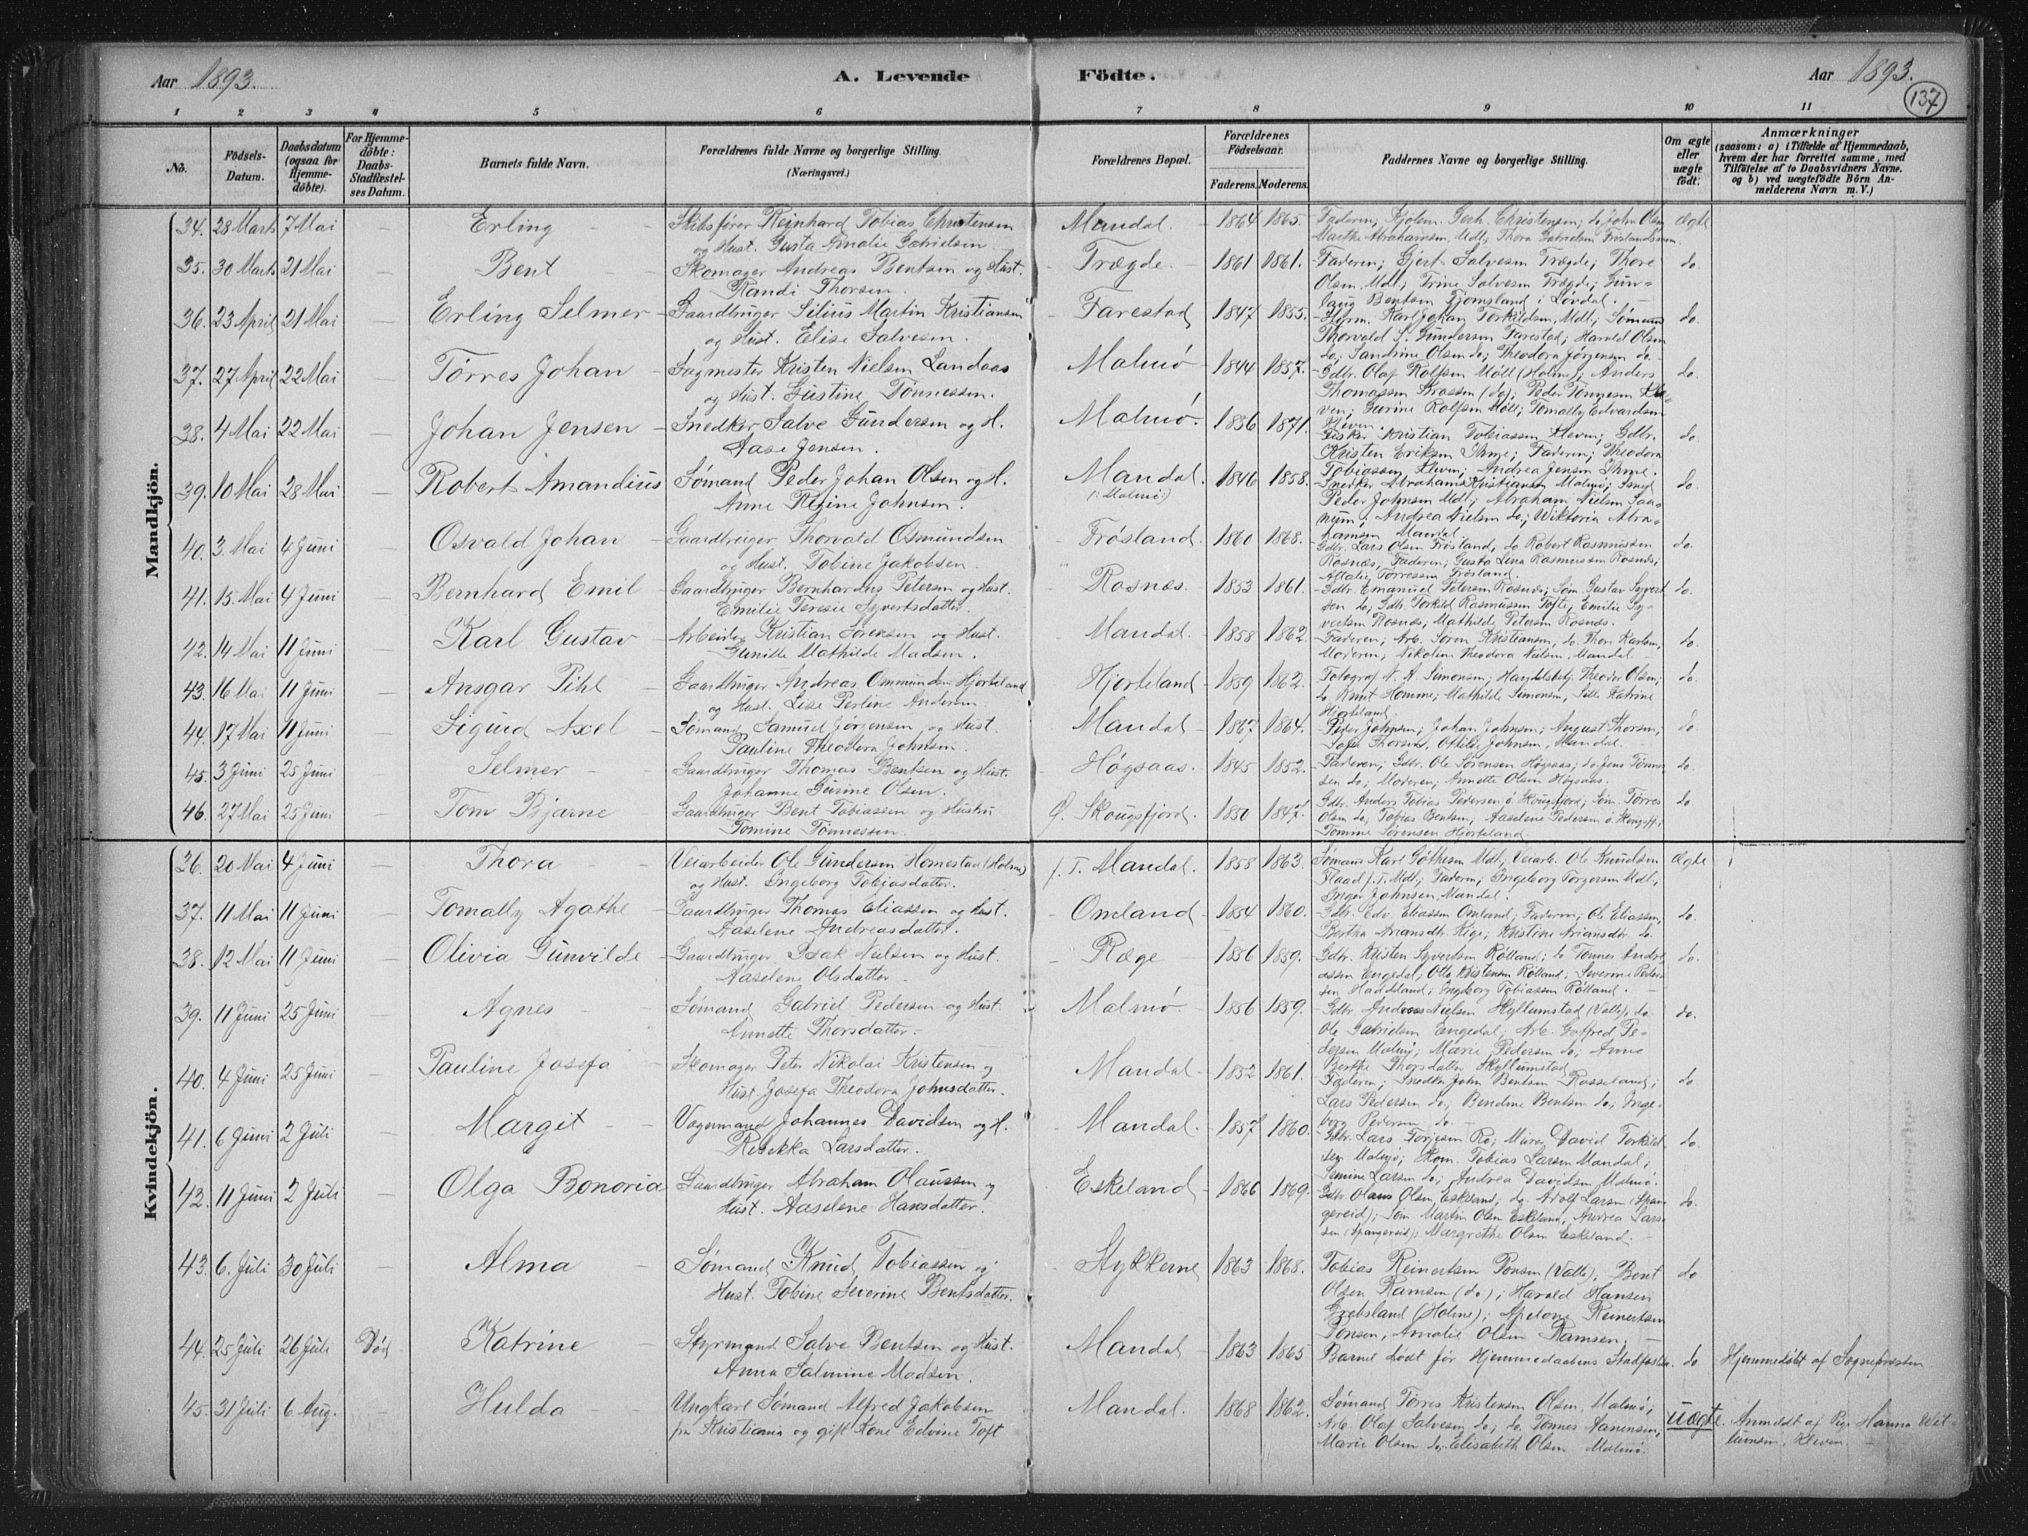 Aar 1893.
A. Levende Födte.
Aar 1893.
137
1 2 3 4 5 6 7 8 9 10 11
No.
Födsels-Datum.
Daabsdatum (ogsaa for Hjemme-döbte).
For Hjemme-döbte: Daabs-Stadfæstel-ses Datum.
Barnets fulde Navn.
Forældrenes fulde Navne og borgerlige Stilling. (Næringsvei.)
Forældrenes Bopæl.
Forældrenes Födselsaar. Faderens. Moderens.
Faddernes Navne og borgerlige Stilling.
Om ægte eller uægte födt.
Anmærkninger (saasom: a) i Tilfælde af Hjemmedaab, hvem der har forrettet samme, med Tilföielse af to Daabsvidners Navne. og b) ved uægtefödte Börn An-melderens Navn m. V.)
Mandkjön.
34. 28 Marts 7 Mai - Erling - Skibsfører Reinhard Tobias Christensen
og Hust. Gusta Amalie Gabrielsen. Mandal. 1864 1865. Faderen; ægte
35. 30 Marts 21 Mai - Bent - Skomager Andreas Bentsen og Hust.
Randi Thorsen. Trægde. 1861 1861. Faderen; Gjert Salvesen Trægde; Thore
Olsen Mdl; Trine Salvesen Trægde; do.
36. 23 April 21 Mai - Erling Selmer - Gaardbruger Silius Martin Kristiansen
og Hust. Elise Salvesen. Farestad 1847 1855. Karl Johan Torkildsen, Mdl;
Thorvald S. Gundersen Farestad; Harald Olsen
do; Sandrine Olsen do; Theodora Jörgensen do. do.
37. 27 April 22 Mai - Tørres Johan - Sagmester Kristen Nielsen Landaas
og Hust. Gustine Tönnessen. Malmö 1844 1857. Gdbr. Olaf Rolfsen Höll (Holm); Anders
Thomassen do.
38. 4 Mai 22 Mai - Johan Jensen - Snedker Salve Gundersen og H.
Aase Jensen. Malmö. 1836 1871. Fisker Kristian Tobiassen Kleven; Gdbr.
Kristen Eriksen Ihme; Faderen; Theodora
Tobiassen Kleven; Andrea Jensen Ihme. do.
39. 10 Mai 28 Mai - Robert Amandius - Sømand Peder Johan Olsen og H.
Anne Regine Johnsen. Mandal. (: Malmö:) 1846 1858. Snedker Abraham Kristiansen Malmö; Smed
Peder Johnsen Mdl; Abraham Nielsen
Andrea Nielsen do; Wiktoria Abra-
hamsen Mandal. do.
40. 3. Mai 4 Juni - Osvald Johan - Gaardbruger Thorvald Osmundsen
og Hust. Tobine Jakobsen. Frösland. 1860 1868. Gdbr. Lars Olsen Frösland, do Robert Rasmussen
Rosnæs, Faderen; Gusta Lina Rasmussen Rosnæs;
Attalie Törressen Frösland. do.
41. 15. Mai 4 Juni - Bernhard Emil - Gaardbruger Bernhardus Petersen og Hust.
Emilie Teresie Syvertsdatter. Rosnæs. 1853 1861. Gdbr. Emanuel Petersen Rosnæs; Søm. Gustav Syvert-
sen do; Gdbr. Torkild Rasmussen Tofte; Emilie Sy-
vertsen Rosnæs, Mathilde Petersen Rosnæs. do.
42. 14 Mai 11 Juni - Karl Gustav - Arbeider Kristian Sørensen og Hust.
Gunille Mathilde Madsen. Mandal. 1858 1862. Faderen; Arb. Søren Kristiansen, do. Thor Karlsen,
Moderen; Nikoline Theodora Nielsen, Mandal. do.
43. 16 Mai 11 Juni - Ansgar Pihl - Gaardbruger Andreas Ommundsen Hjorteland
og Hust. Lise Perline Andersen. Hjorteland 1859 1862. Fotograf N. A. Simonsen; Handelsbetj. Theodor Olsen;
do Knut Homme; Mathilde Simonsen, Katrine
Hjorteland. do.
44. 17 Mai 11 Juni - Sigurd Axel - Sømand Samuel Jørgensen og Hust.
Pauline Theodora Johnsen. Mandal. 1867 1864. Peder Johnsen; Johan Johnsen; August Thorsen;
Thorsen, Othilde Johnsen, Mandal. do
45. 3 Juni 25 Juni - Selmer - Gaardbruger Thomas Bentsen og Hust.
Johanne Gurine Olsen. Høgsaas. 1845 1852. Faderen; Gdbr. Ole Sørensen Høgsaas; do Jens Tönnes-
sen do; Moderen; Annette Olsen Høgsaas. do.
46. 27 Mai 25 Juni - Tom Bjarne - Gaardbruger Bent Tobiassen og Hustru
Tomine Tønnessen. Ø. Skougsfjord. 1850 1847. Gdbr. Anders Tobias Pedersen ö. Skougsfjord; Søm. Törres
Olsen do, Tobias Bentsen; Aaselene Pedersen ö. Skougsfj;
Tomine Sørensen Hjorteland. do
Kvindekjön.
36. 20 Mai 4 Juni - Thora - Veiarbeider Ole Gundersen Homestad (Holme)
og Hust. Ingeborg Tobiasdatter. f. T. Mandal. 1858 1863. Sømand Karl Göthesen Mdl; Veiarb. Ole Knudsen
Flaad f. T. Mdl; Faderen; Ingeborg Torgersen Mdl;
Inger Johnsen Mandal. Ægte
37. 11 Mai 11 Juni - Tomally Agathe - Gaardbruger Thomas Eliassen og Hust.
Aaselene Andreasdatter. Omland 1854 1860. Gdbr. Edv. Eliassen Omland; Faderen; Ole Eliassen,
Bertha Ariansdtr. Rige; Kristine Ariansdtr do. do.
38. 12 Mai 11 Juni - Olivia Gunvilde - Gaardbruger Isak Nielsen og Hust.
Aaselene Olsdatter. Ræge 1856 1859. Gdbr. Kristen Syvertsen Rølland; do Tönnes Andre-
assen Engedal, Otto Kristensen Rølland; Severine Peder-
sen Haadeland; Ingeborg Tobiassen Rølland. do.
39. 11 Juni 25 Juni - Agnes - Sømand Gabriel Pedersen og Hust.
Annette Thorsdatter. Malmö. 1856 1859. Gdbr. Andreas Nielsen Hyllumstad (Valle), do.
Ole Gabrielsen Engedal; Arb. Gotfred Pe-
dersen Malmö; Marie Pedersen do; Anne
Berthe Thorsdatter Skyllumstad do.
40. 4 Juni 25 Juni - Pauline Josefa - Skomager Peter Nikolai Kristensen og
Hust. Josefa Theodora Johnsdatter. Mandal. 1852 1861. Faderen; Snedker John Bentsen Rosseland;
Lars Pedersen do; Bendine Bentsen do; Inge-
borg Pedersen do. do
41. 6 Juni 2 Juli - Margit - Vognmand Johannes Davidsen og H.
Rebekka Larsdatter. Mandal. 1857 1860. Gdbr. Lars Torjesen Ro; Murer David Torkild-
sen Malmö; Skom. Tobias Larsen Mandal;
Semine Larsen do; Andrea Davidsen Malmö. do.
42. 11 Juni 2 Juli - Olga Bonoria - Gaardbruger Abraham Olaussen og
Hust. Aaselene Hansdatter. Eskeland. 1866 1869. Gdbr. Olaus Olsen Eskeland; do. Adolf Larsen (Span-
gereid); Søm. Martin Olsen Eskeland, Andrea Lars-
sen (Spangereid); Margrethe Olsen Eskeland. do.
43. 6. Juli 30 Juli - Alma - Sømand Knud Tobiassen og
Hust. Tobine Severine Bentsdatter. Stykkerne 1863 1868. Tobias Reinertsen Tonsen (Valle), Bent
Olsen Ramsen (do); Harald Hansen
Erebsland (Holme); Apelone Reinertsen
Tonsen, Amalie Olsen Ramsen. do
44. 25 Juli 26 Juli Död Katrine - Styrmand Salve Bentsen og Hust.
Anna Salmine Madsen. Mandal. 1863 1865 Barnet dödt før Hjemmedaabens Stadfæstelse. do Hjemmedöbt af Sognepræsten
45. 31 Juli 6 Aug. - Hulda - Ungkarl Sømand Alfred Jakobsen
fra Kristiania og gift Kone Edvine Toft Mandal. 1868 1862. Sømand Törres Kristensen Olsen, Malmö;
Arb. Olaf Salvesen do; do. Tönnes Aanensen,
Marie Olsen do, Elisabeth Olsen Malmö. uægte. Anmeldt af Pige Hanna
Kleven.